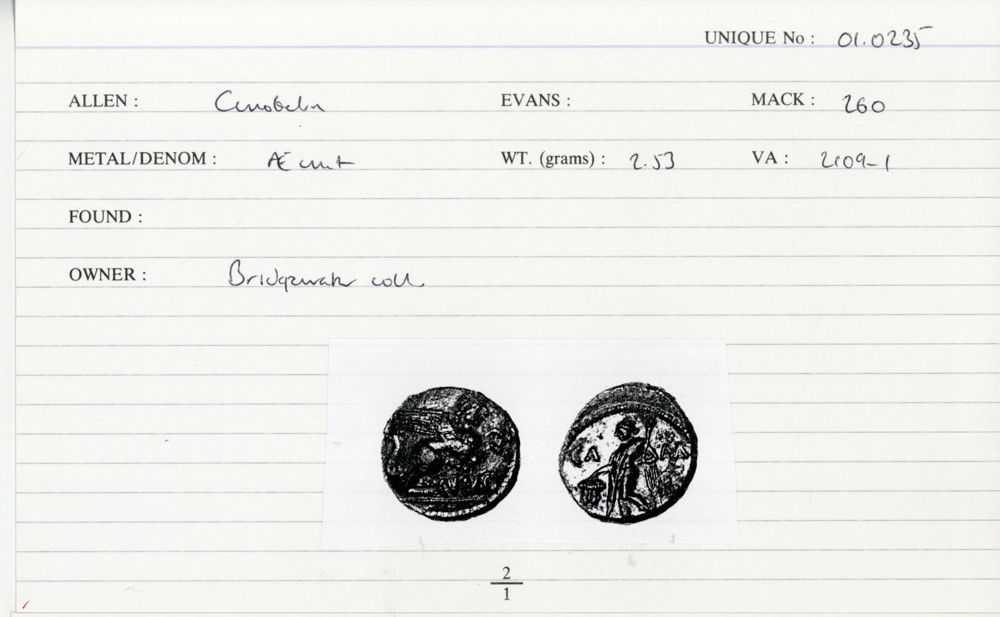 UNIQUE No : 01.0235
ALLEN : Cunobelin EVANS : MACK : 260
METAL/DENOM : Æ unit WT. (grams) : 2.53 VA : 2109-1
FOUND :
OWNER : Bridgewater coll.
CA M
2
1